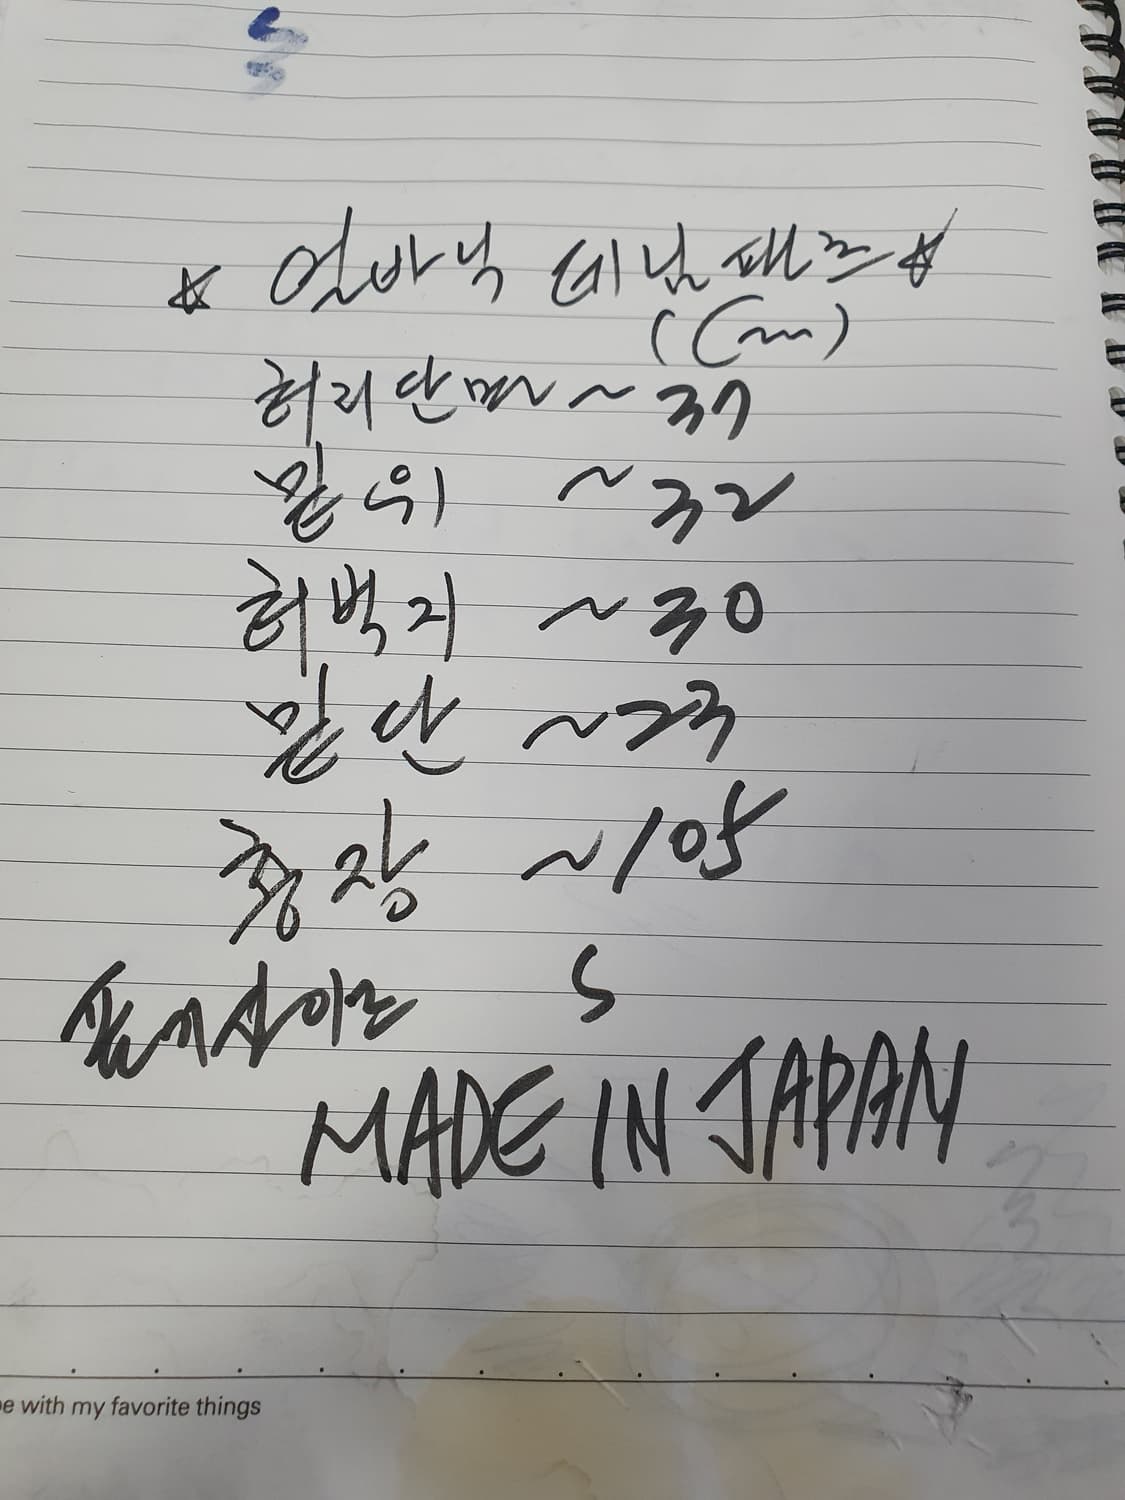 ☆ 얼바닉 데님팬츠 ☆
(cm)
허리단면 ~ 37
밑위 ~ 32
허벅지 ~ 30
밑단 ~ 23
총장 ~ 105
표기사이즈 S
MADE IN JAPAN
e with my favorite things